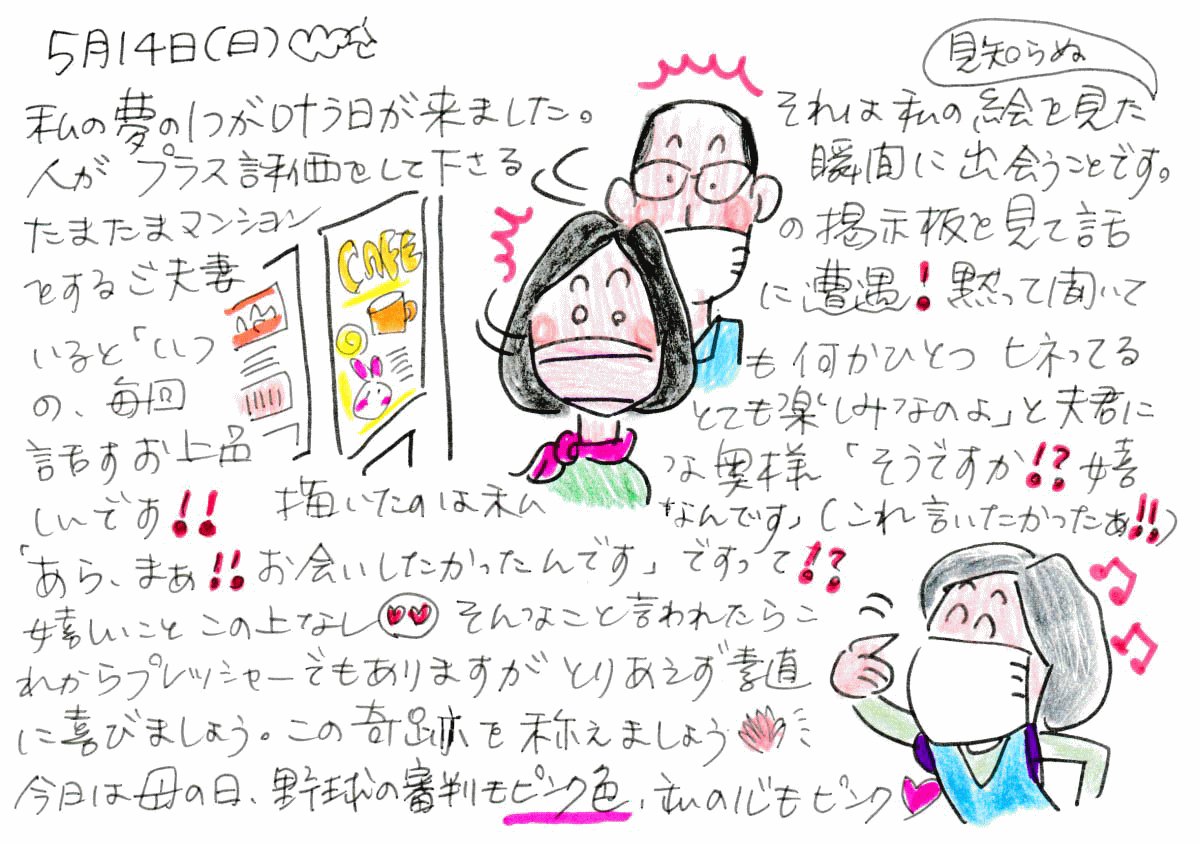 5月14日(日)
見知らぬ
私の夢の1つが叶う日が来ました。 それは私の絵を見た
人が プラス評価をして下さる 瞬間に出会うことです。
たまたまマンション の掲示板を見て話
をするご夫妻 に遭遇！黙って聞いて
いると「いつ も何かひとつ ヒネってる
の、毎回 とても楽しみなのよ」と夫君に
話すお上品 な奥様 「そうですか!?嬉
しいです!! 描いたのは私 なんです」(これ言いたかったぁ!!)
「あら、まぁ!!お会いしたかったんです」ですって!?
嬉しいこと この上なし そんなこと言われたらこ
れからプレッシャーでもありますが とりあえず素直
に喜びましょう。この奇跡を称えましょう
今日は母の日、野球の審判もピンク色、私の心もピンク
CAFE